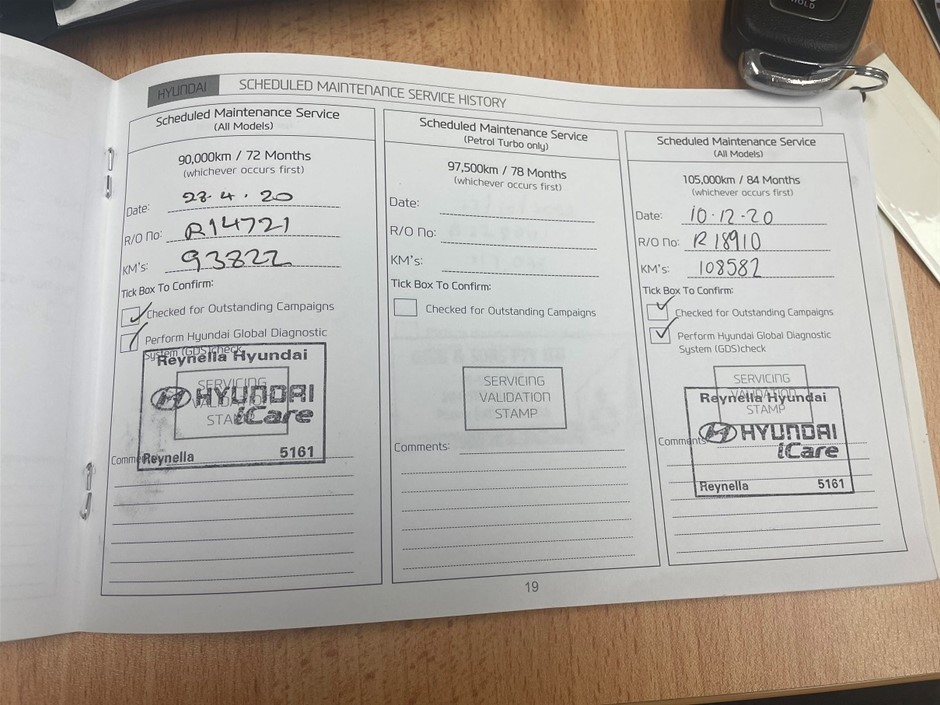 HOLD
HYUNDAI SCHEDULED MAINTENANCE SERVICE HISTORY
Scheduled Maintenance Service
(All Models)
90,000km / 72 Months
(whichever occurs first)
Date: 28.4.20
R/O No: R14721
KM's: 93822
Tick Box To Confirm:
Checked for Outstanding Campaigns
Perform Hyundai Global Diagnostic
System (GDS)check
Reynella Hyundai
SERVICING
VALIDATION
STAMP
HYUNDAI
iCare
Comments:
Reynella 5161
Scheduled Maintenance Service
(Petrol Turbo only)
97,500km / 78 Months
(whichever occurs first)
Date:
R/O No:
KM's:
Tick Box To Confirm:
Checked for Outstanding Campaigns
SERVICING
VALIDATION
STAMP
Comments:
Scheduled Maintenance Service
(All Models)
105,000km / 84 Months
(whichever occurs first)
Date: 10-12-20
R/O No: R18910
KM's: 108582
Tick Box To Confirm:
Checked for Outstanding Campaigns
Perform Hyundai Global Diagnostic
System (GDS)check
SERVICING
VALIDATION
STAMP
Reynella Hyundai
HYUNDAI
iCare
Comments:
Reynella 5161
19